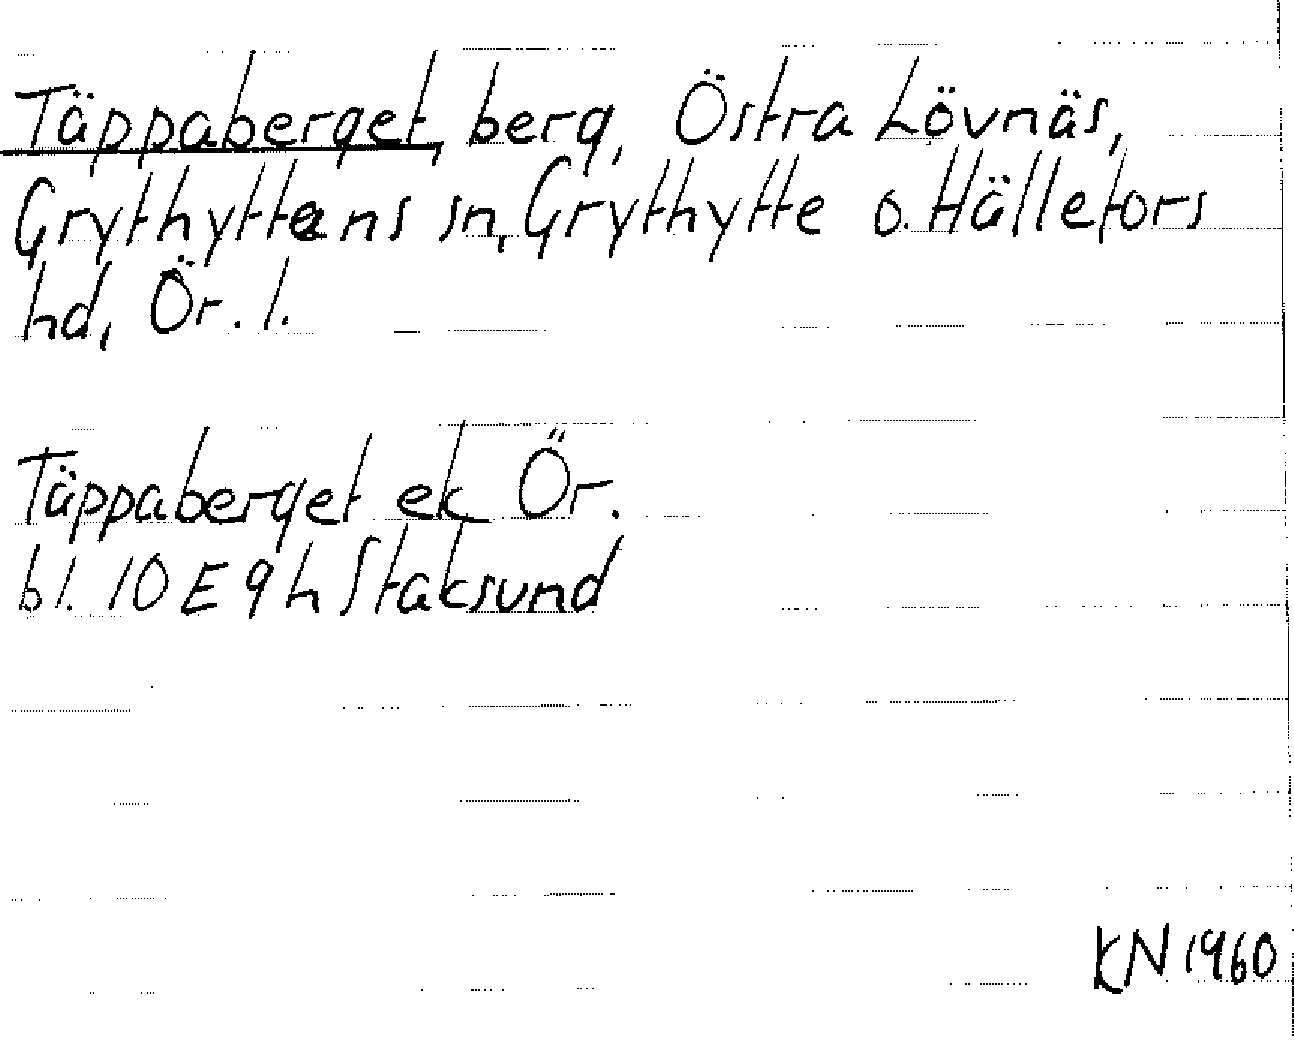 Täppaberget, berg, Östra Lövnäs,
Grythyttans sn, Grythytte o. Hällefors
hd, Ör. l.
Täppaberget ek Ör.
bl. 10 E 9 h Staksund
KN 1960